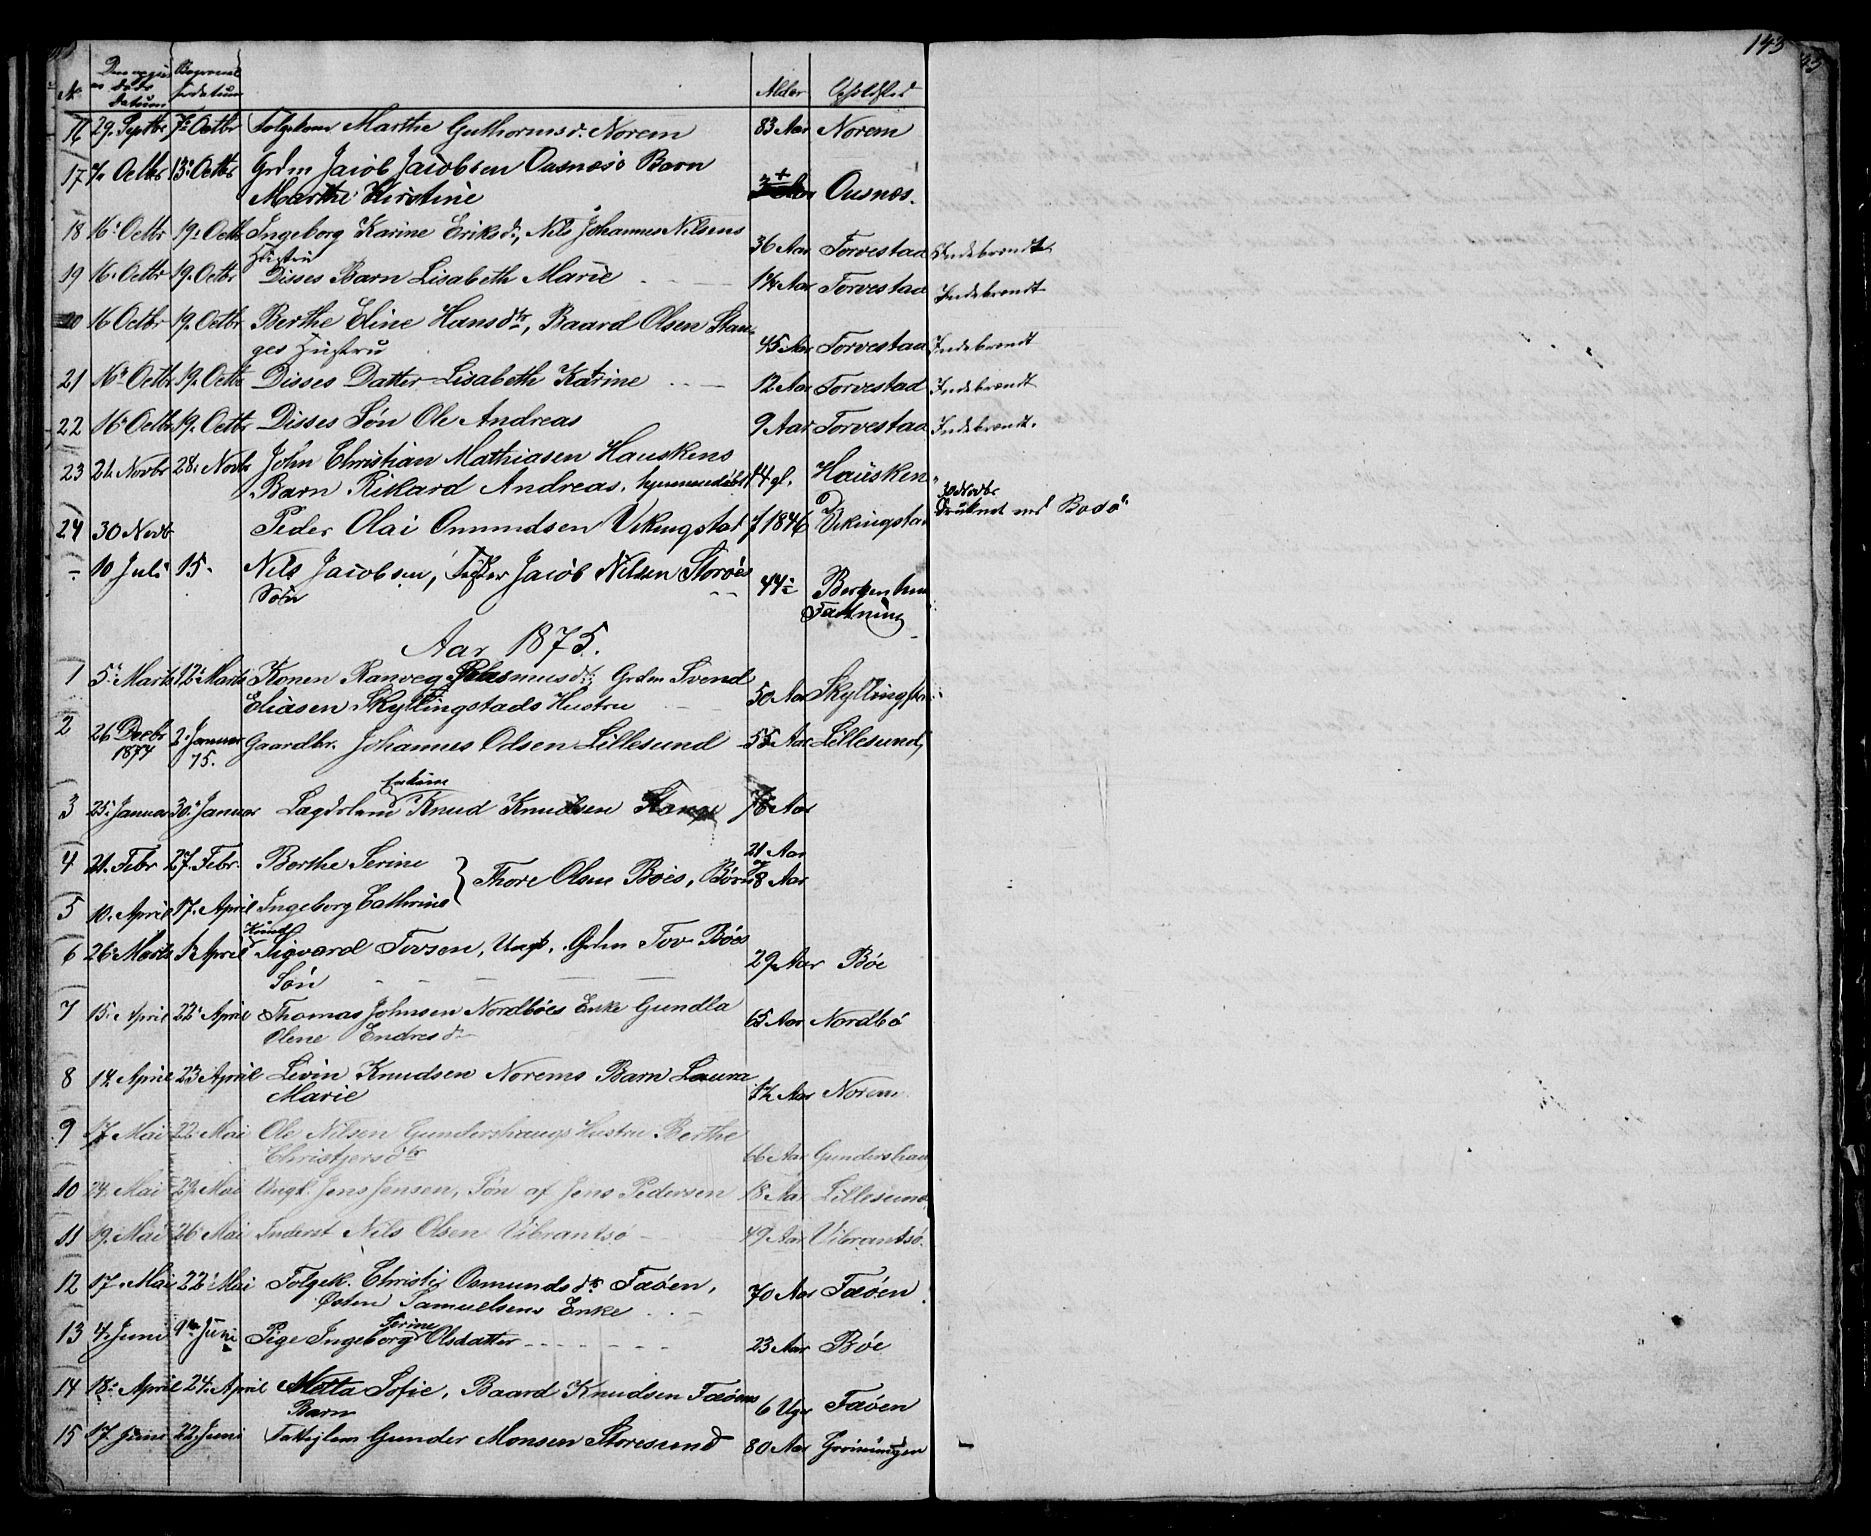 143
No Den opgivne Døds datum Begravelsesdatum Alder Opholdssted
16 29. Septbr 7de Octbr Folgekone Marthe Guthormsd. Norem 83 Aar Norem
17 7. Octbr 13. Octbr Grdm Jacob Jacobsen Ousnæs's Barn
Marthe Kirstine Ousnæs.
18 16. Octbr 19. Octbr Ingeborg Karine Eriksd., Nils Johannes Nilsens
Hustru 36 Aar Torvestad Indebrændt
19 16. Octbr 19. Octbr Disses Barn Lisabeth Marie 14 Aar Torvestad Indebrændt
20 16 Octbr 19. Octbr Berthe Eline Hansdtr, Baard Olsen Stan-
ges Hustru 45 Aar Torvestad Indebrændt
21 16. Octbr 19. Octbr Disses Datter Lisabeth Katrine 12 Aar Torvestad Indebrændt
22 16. Octbr 19. Octbr Disses Søn Ole Andreas 9 Aar Torvestad Indebrændt.
23 21. Novbr 28. Novbr John Christian Mathiasen Hauskens
Barn Rikard Andreas. hjemmedøbt Hausken
24 30 Novb Peder Olai Omundsen Vikingstad f 1846 Vikingstad 30 Novbr druknet ved Bodø
10 Juli 15. Nils Jacobsen, Jacob Nilsen Storøes
Søn 44 Bergenhus
Fæstning
Aar 1875.
1 5. Marts 12. Marts Konen Ranveg Rasmusdt., Grdm Svend
Eliasen Skyllingstads Hustru 50 Aar Skyllingstad
2 26 Decbr 1874 2. Januar 75. Gaardbr. Johannes Odsen Lillesund 55 Aar Lillesund
3 25. Januar 30. Januar Lægdslem Knud Knudsen Stange 78 Aar
4 21. Febr 27. Febr. Berthe Serine 21 Aar
} Thore Olsen Bøes, Børn 8 Aar
5 10. April 17. April Ingeborg Cathrine
6 26. Marts 1. April Sigvard Tovsen, Ungk. Grdm Tov Bøes
Søn 29 Aar Bøe
7 15. April 22. April Thomas Johnsen Nordbøes Enke Gundla
Olene Endresd. 65 Aar Nordbø
8 17. April 23 April Levin Knudsen Norems Barn Laura
Marie 1½ Aar Norem
9 17 Mai 22 Mai Ole Nilsen Gundershaugs Hustru Berthe
Christjersdtr 66 Aar Gundershau
10 24. Mai 29. Mai Ungk. Jens Jensen, Søn af Jens Pedersen 18 Aar Lillesund
11 19. Mai 26 Mai Inderst Nils Olsen Vibrantsø 49 Aar Vibrantsø.
12 17. Mai 22. Mai Folgek. Christi Osmundsdtr Fæøen,
Østen Samuelsens Enke 70 Aar Fæøen
13 4. Juni 9de Juni Pige Ingeborg Serine Olsdatter 23 Aar Bøe
14 18. April 24. April Metta Sofie, Baard Knudsen Fæøens
Barn 6 Uger Fæøen
15 17 Juni 22. Juni Fattiglem Gunder Monsen Storesund 80 Aar Grønningen